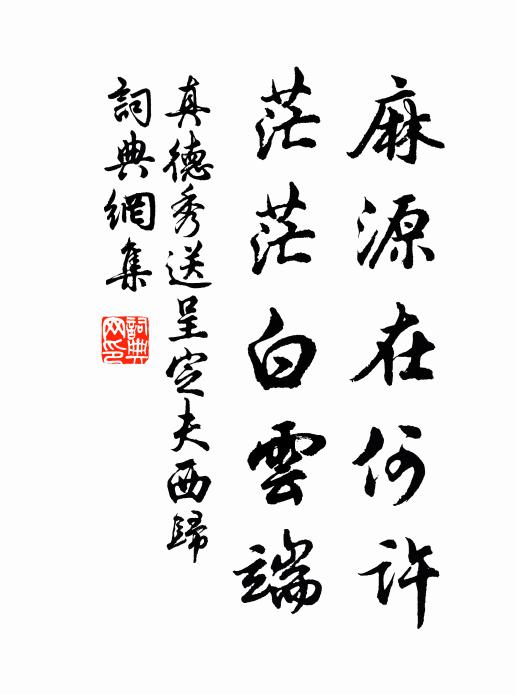 麻源在何許
茫茫白雲端
真德秀送呈定夫西歸
詞典網集
詞典网印